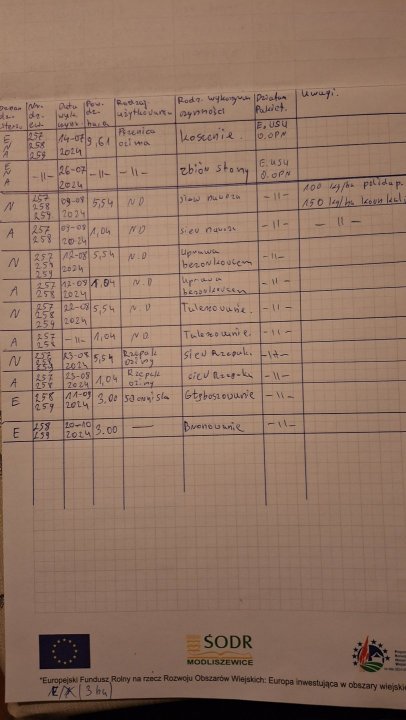 Nr. dz. ew. Data wyk. Pow. dz. Rodzaj użytkowania Rodz. wykonywan czynności Działan Pakiet. Uwagi.
E N A 257 258 259 14-07 2024 9,61 Pszenica ozima Koszenie. E.USU O.OPN
E N A -11- 26-07 2024 -11- -11- zbiór słomy E.USU O.OPN
N 257 258 259 09-08 2024 5,54 N D siew nawoza -11- 100 kg/ha polidap. 150 kg/ha korn kali
A 257 258 09-08 2024 1,04 N.D siew nawoza -11- -11-
N 257 258 259 12-08 2024 5,54 N.D Uprawa bezorkowcem -11-
A 257 258 12-08 2024 1.04 N.D Uprawa bezorkowcem -11-
N 257 258 259 22-08 2024 5,54 N.D Talerzowanie. -11-
A 257 258 -11- 1.04 N.D Talerzowanie. -11-
N 257 258 259 23-08 2024 5,54 Rzepak ozimy siew Rzepak. -11-
A 257 258 23-08 2024 1,04 Rzepak ozimy siew Rzepaku -11-
E 258 259 11-09 2024 3.00 Głęboszowanie -11-
E 258 259 20-10 2024 3.00 — Bronowanie -11-
ŚODR
MODLISZEWICE
"Europejski Fundusz Rolny na rzecz Rozwoju Obszarów Wiejskich: Europa inwestująca w obszary wiejskie
(3 ha)